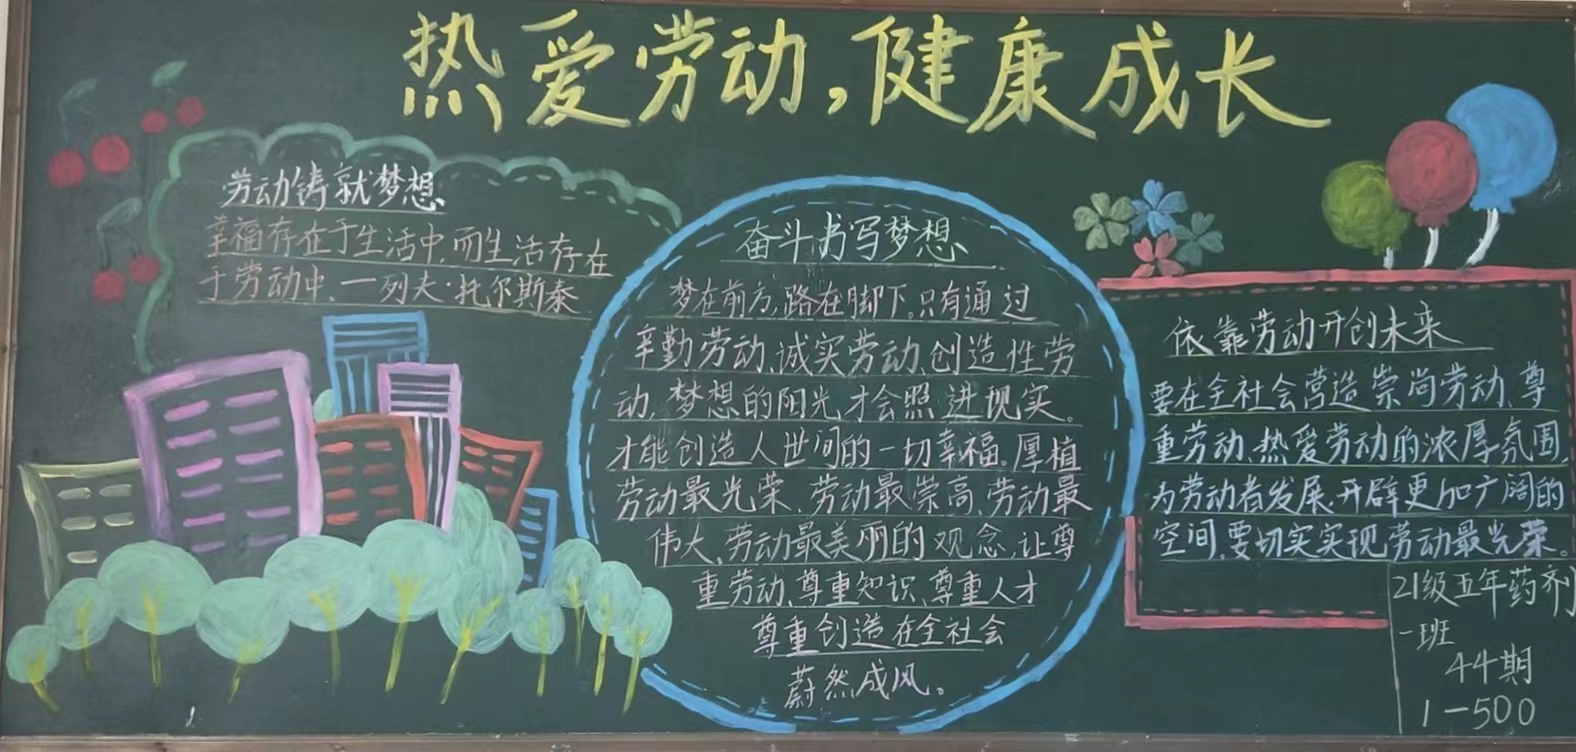 热爱劳动,健康成长
劳动铸就梦想
幸福存在于生活中,而生活存在
于劳动中,一列夫·托尔斯泰
奋斗书写梦想
梦在前方,路在脚下。只有通过
辛勤劳动、诚实劳动、创造性劳
动,梦想的阳光,才会照进现实。
才能创造人世间的一切幸福。厚植
劳动最光荣、劳动最崇高、劳动最
伟大、劳动最美丽的观念,让尊
重劳动、尊重知识、尊重人才
尊重创造在全社会
蔚然成风。
依靠劳动开创未来
要在全社会营造崇尚劳动、尊
重劳动、热爱劳动的浓厚氛围,
为劳动者发展、开辟更加广阔的
空间,要切实实现劳动最光荣。
21级五年药剂
一班
44期
1-500